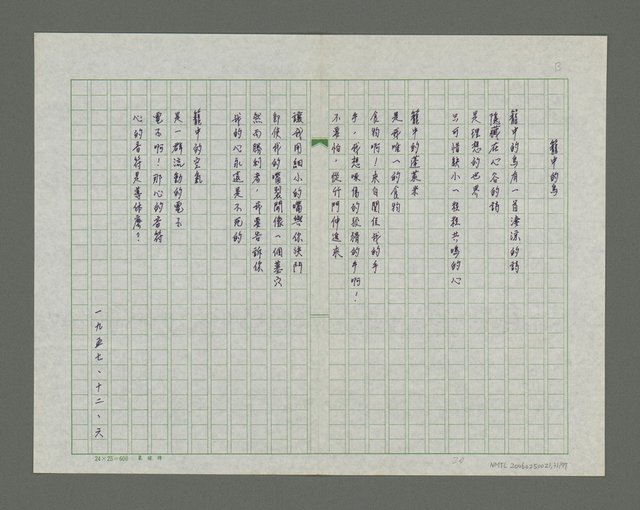 B
籠中的鳥
籠中的鳥有一首淒涼的詩
隱藏在心谷的詩
是理想的世界
只可惜缺小一顆共鳴的心
籠中的蓬萊米
是我唯一的食物
食物啊！來自關住我的手
手，我想啄傷的狡猾的手啊！
不要怕，從竹門伸進來
讓我用細小的嘴與你決鬥
即使我的嘴裂開像一個墓穴
然而勝利者，我要告訴你
我的心永遠是不死的
籠中的空氣
是一群流動的電子
電子啊！那心的音符
心的音符是等待麼？
一九五七、十二、
24×25=600
30
NMTL 20060250021